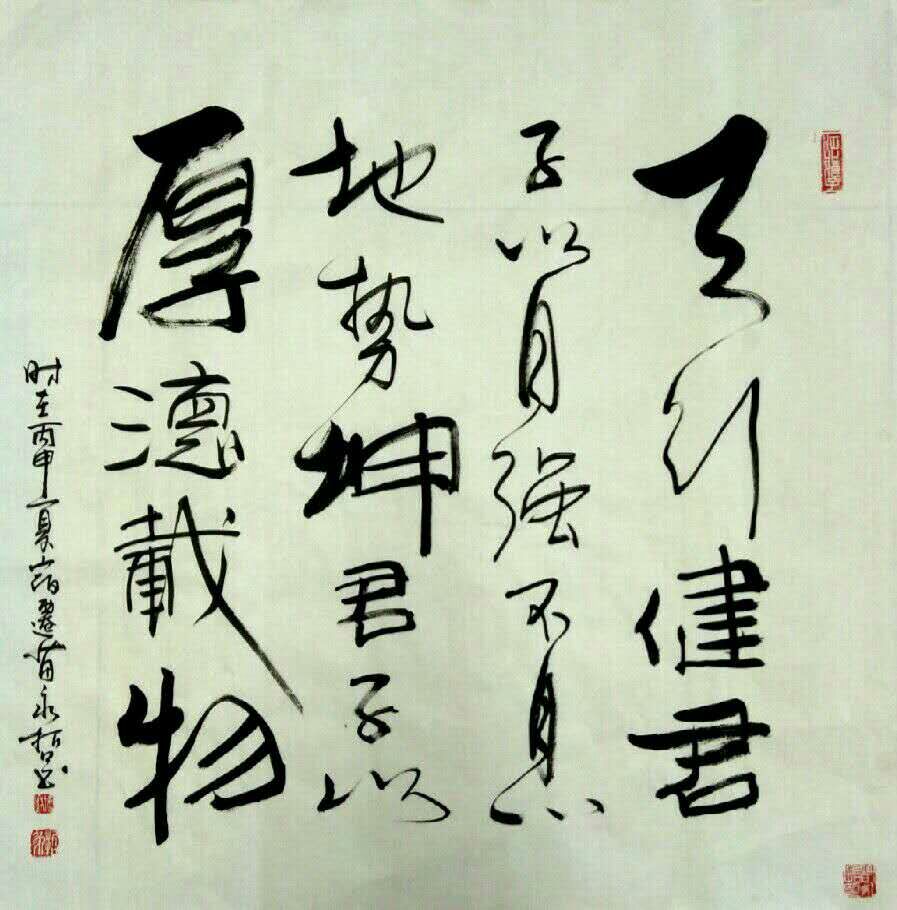 天行健君
子以自强不息
地势坤君子以
厚德载物
时在丙申夏宿迁苗永哲书